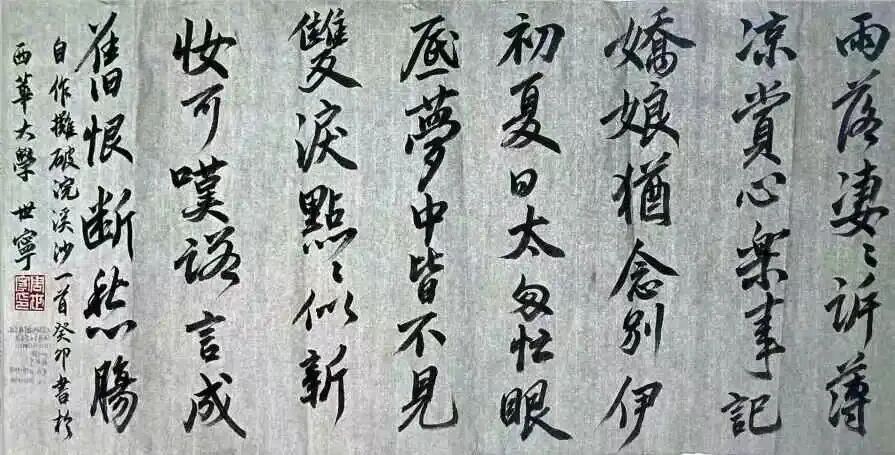 雨落凄〻訴薄
凉賞心樂事記
嬌娘猶念别伊
初夏日太匆忙眼
底夢中皆不見
雙淚點〻似新
妝可嘆諾言成
舊恨断愁腸
自作攤破浣溪沙一首癸卯書於
西華大學 世寧